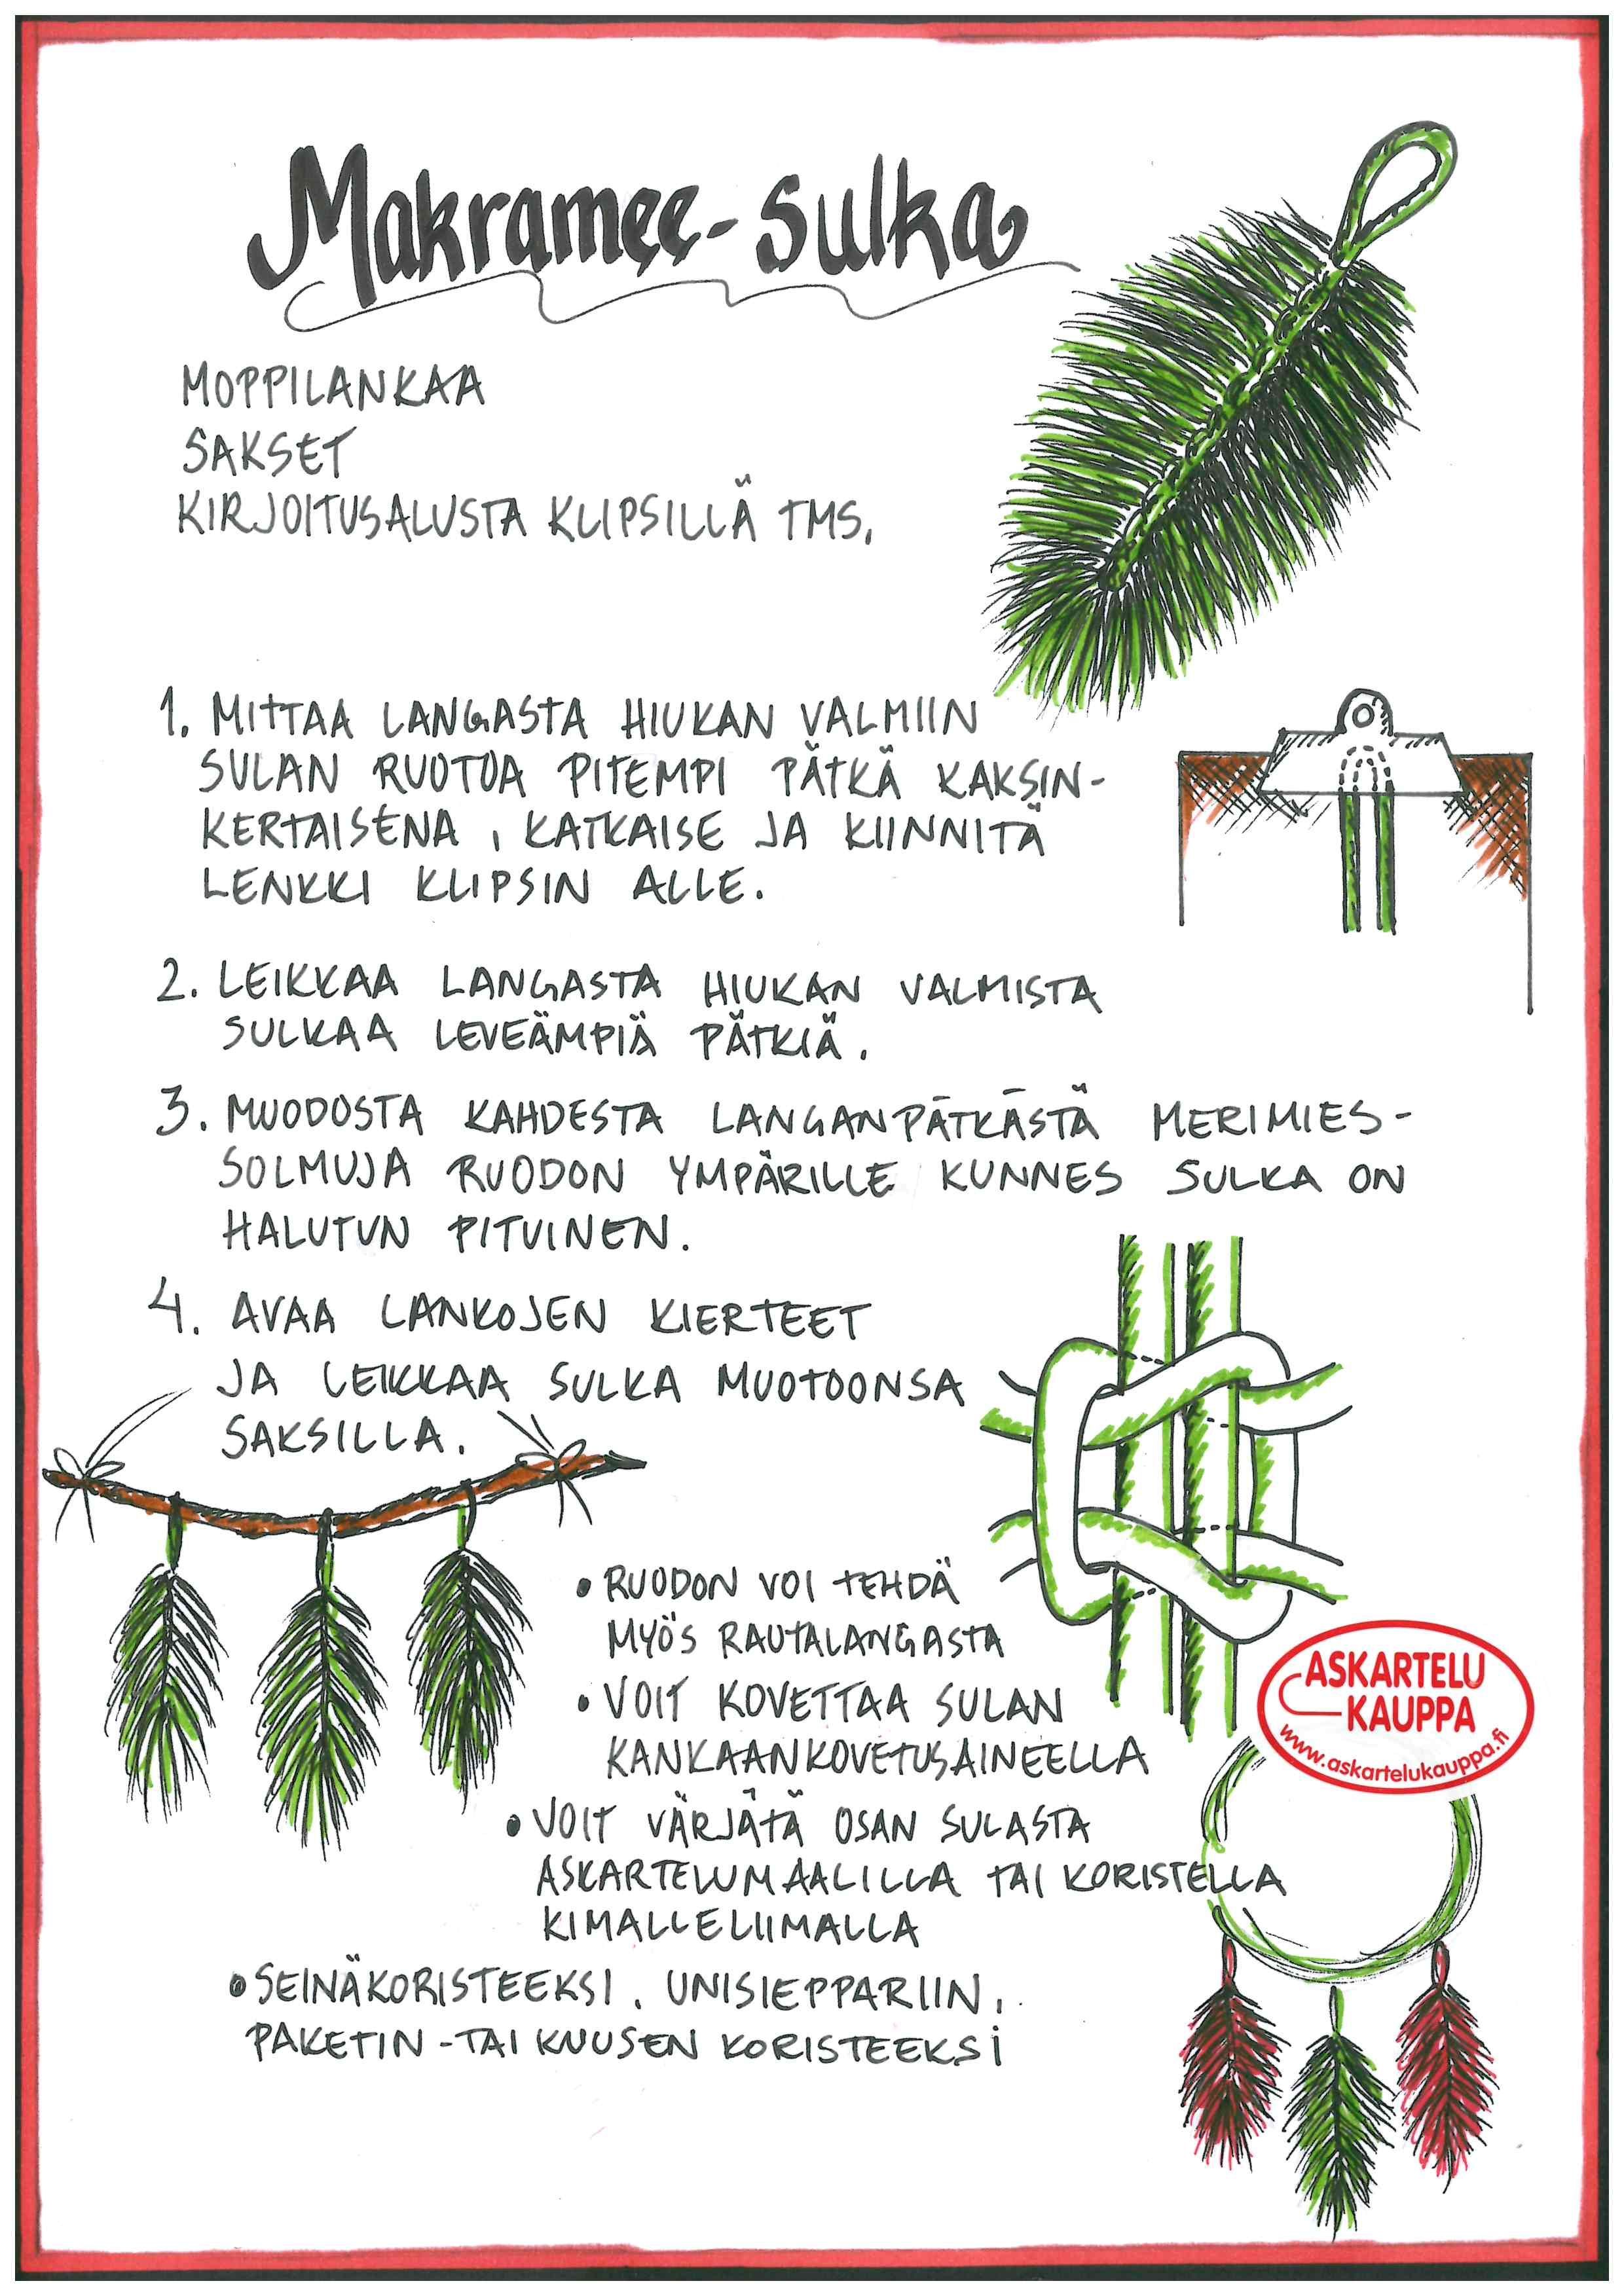 Makramee-sulka
MOPPILANKAA
SAKSET
KIRJOITUSALUSTA KLIPSILLÄ TMS.
1. MITTAA LANGASTA HIUKAN VALMIIN
SULAN RUOTOA PITEMPI PÄTKÄ KAKSIN-
KERTAISENA, KATKAISE JA KIINNITÄ
LENKKI KLIPSIN ALLE.
2. LEIKKAA LANGASTA HIUKAN VALMISTA
SULKAA LEVEÄMPIÄ PÄTKIÄ.
3. MUODOSTA KAHDESTA LANGANPÄTKÄSTÄ MERIMIES-
SOLMUJA RUODON YMPÄRILLE KUNNES SULKA ON
HALUTUN PITUINEN.
4. AVAA LANKOJEN KIERTEET
JA LEIKKAA SULKA MUOTOONSA
SAKSILLA.
• RUODON VOI TEHDÄ
MYÖS RAUTALANGASTA
• VOIT KOVETTAA SULAN
KANKAANKOVETUSAINEELLA
• VOIT VÄRJÄTÄ OSAN SULASTA
ASKARTELUMAALILLA TAI KORISTELLA
KIMALLELIIMALLA
• SEINÄKORISTEEKSI, UNISIEPPARIIN,
PAKETIN-TAI KUUSEN KORISTEEKSI
ASKARTELU
KAUPPA
www.askartelukauppa.fi